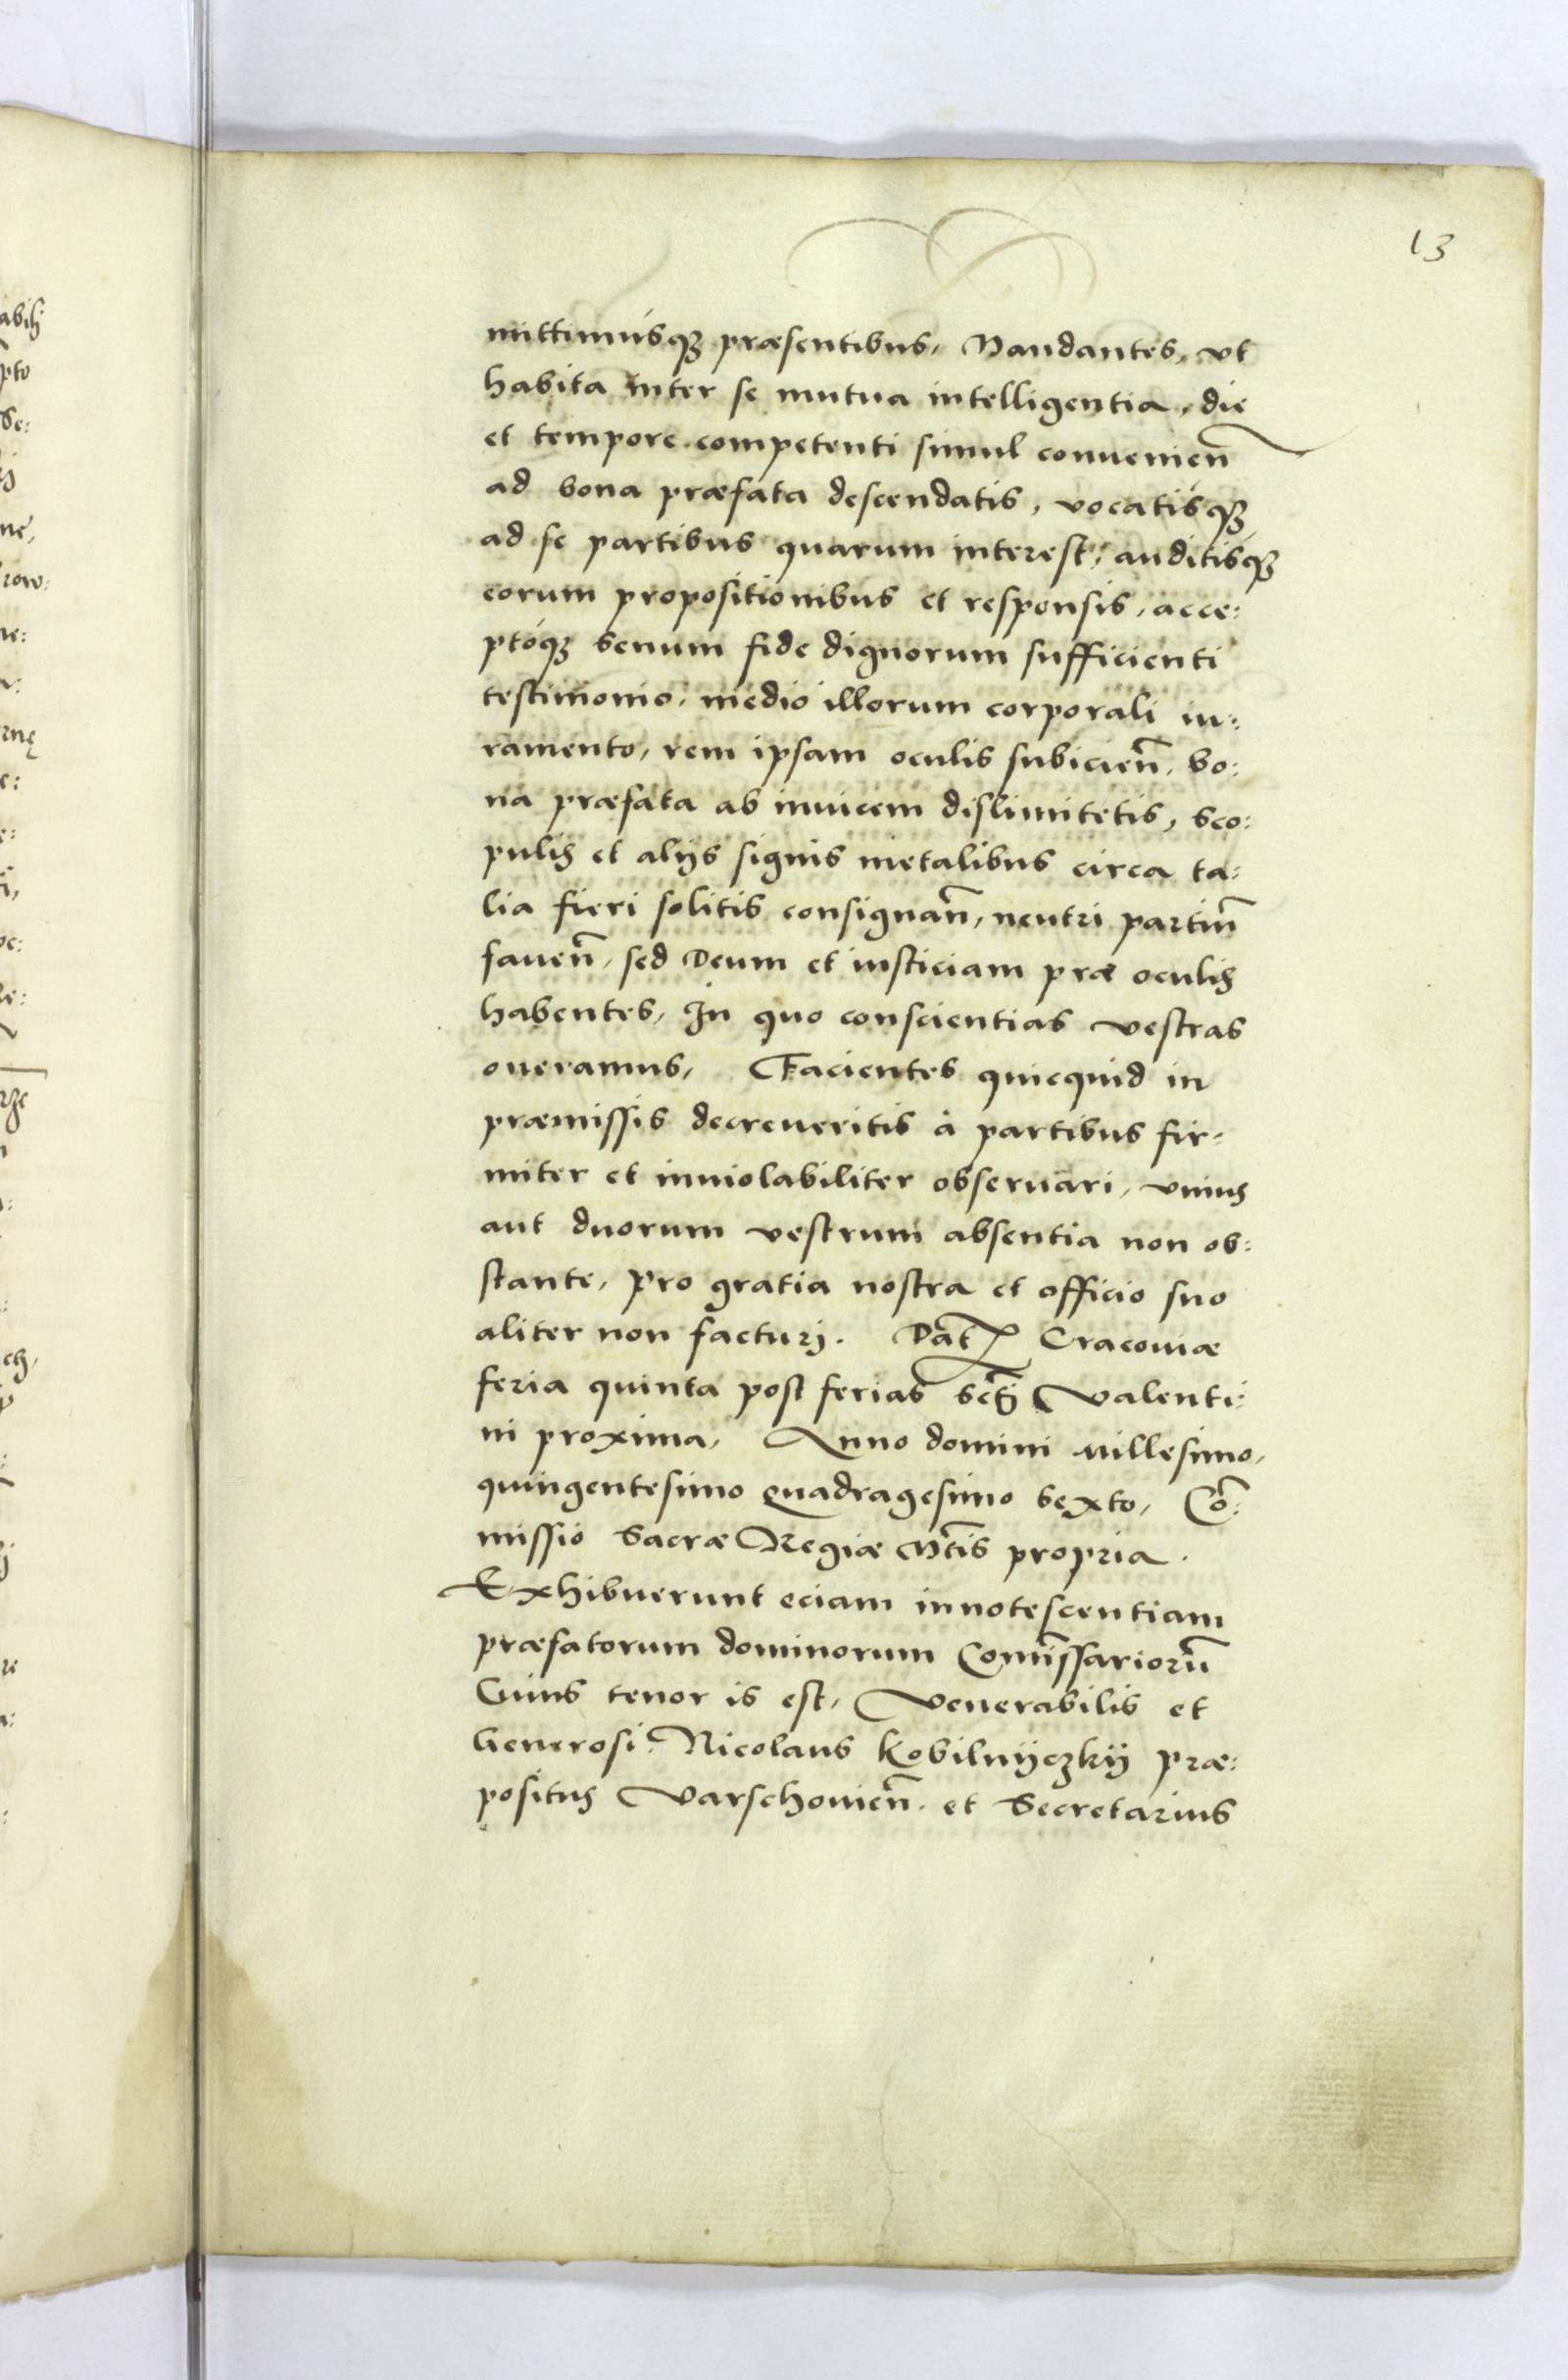 13
mittimúsq₃ præsentibus, Mandantes, vt
habita inter se mutua intelligentia, die
et tempore competenti simul conueniēn
ad bona præfata descendatis, vocatísq₃
ad se partibus quarum interest, auditísq₃
eorum propositionibus et responsis, acce:
ptóq₃ senum fide dignorum sufficienti
testimonio, medio illorum corporali iu:
ramento, rem ipsam oculis subiciēn, bo:
na præfata ab inuicem dislimitetis, sco:
pulis et alijs signis metalibus circa ta:
lia fieri solitis consignān, neutri partiū
fauēn, sed Deum et iusticiam præ oculis
habentes, In quo conscientias vestras
oneramus, Facientes quicquid in
præmissis decreueritis à partibus fir:
miter et inuiolabiliter obseruari, vnius
aut duorum vestrum absentia non ob:
stante, pro gratia nostra et officio suo
aliter non facturj. Dat Cracouiæ
feria quinta post ferias sctĩ Valenti:
ni proxima, Anno domini millesimo,
quingentesimo quadragesimo sexto, Cō:
missio Sacræ Regiæ Mtis propria.
Exhibuerunt eciam innotescentiam
præfatorum dominorum Comīssariorū
Cuius tenor is est, Venerabilis et
Generosi Nicolaus Kobilnÿczkÿ præ:
positus Varschouiēn. et Secretarius